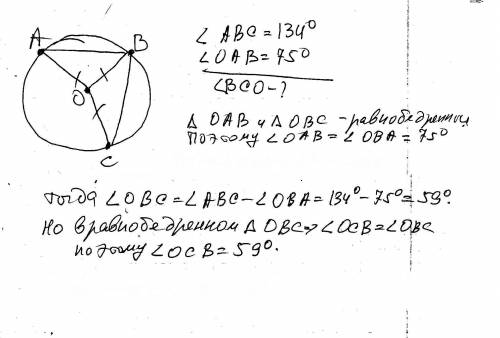 A B
O
C
∠ ABC = 134°
∠OAB = 75°
∠BCO - ?
Δ OAB и Δ OBC - равнобедрен
поэтому ∠OAB = ∠OBA = 75°
тогда ∠OBC = ∠ABC - ∠OBA = 134° - 75° = 59°.
Но в равнобедренном Δ OBC => ∠OCB = ∠OBC
поэтому ∠OCB = 59°.